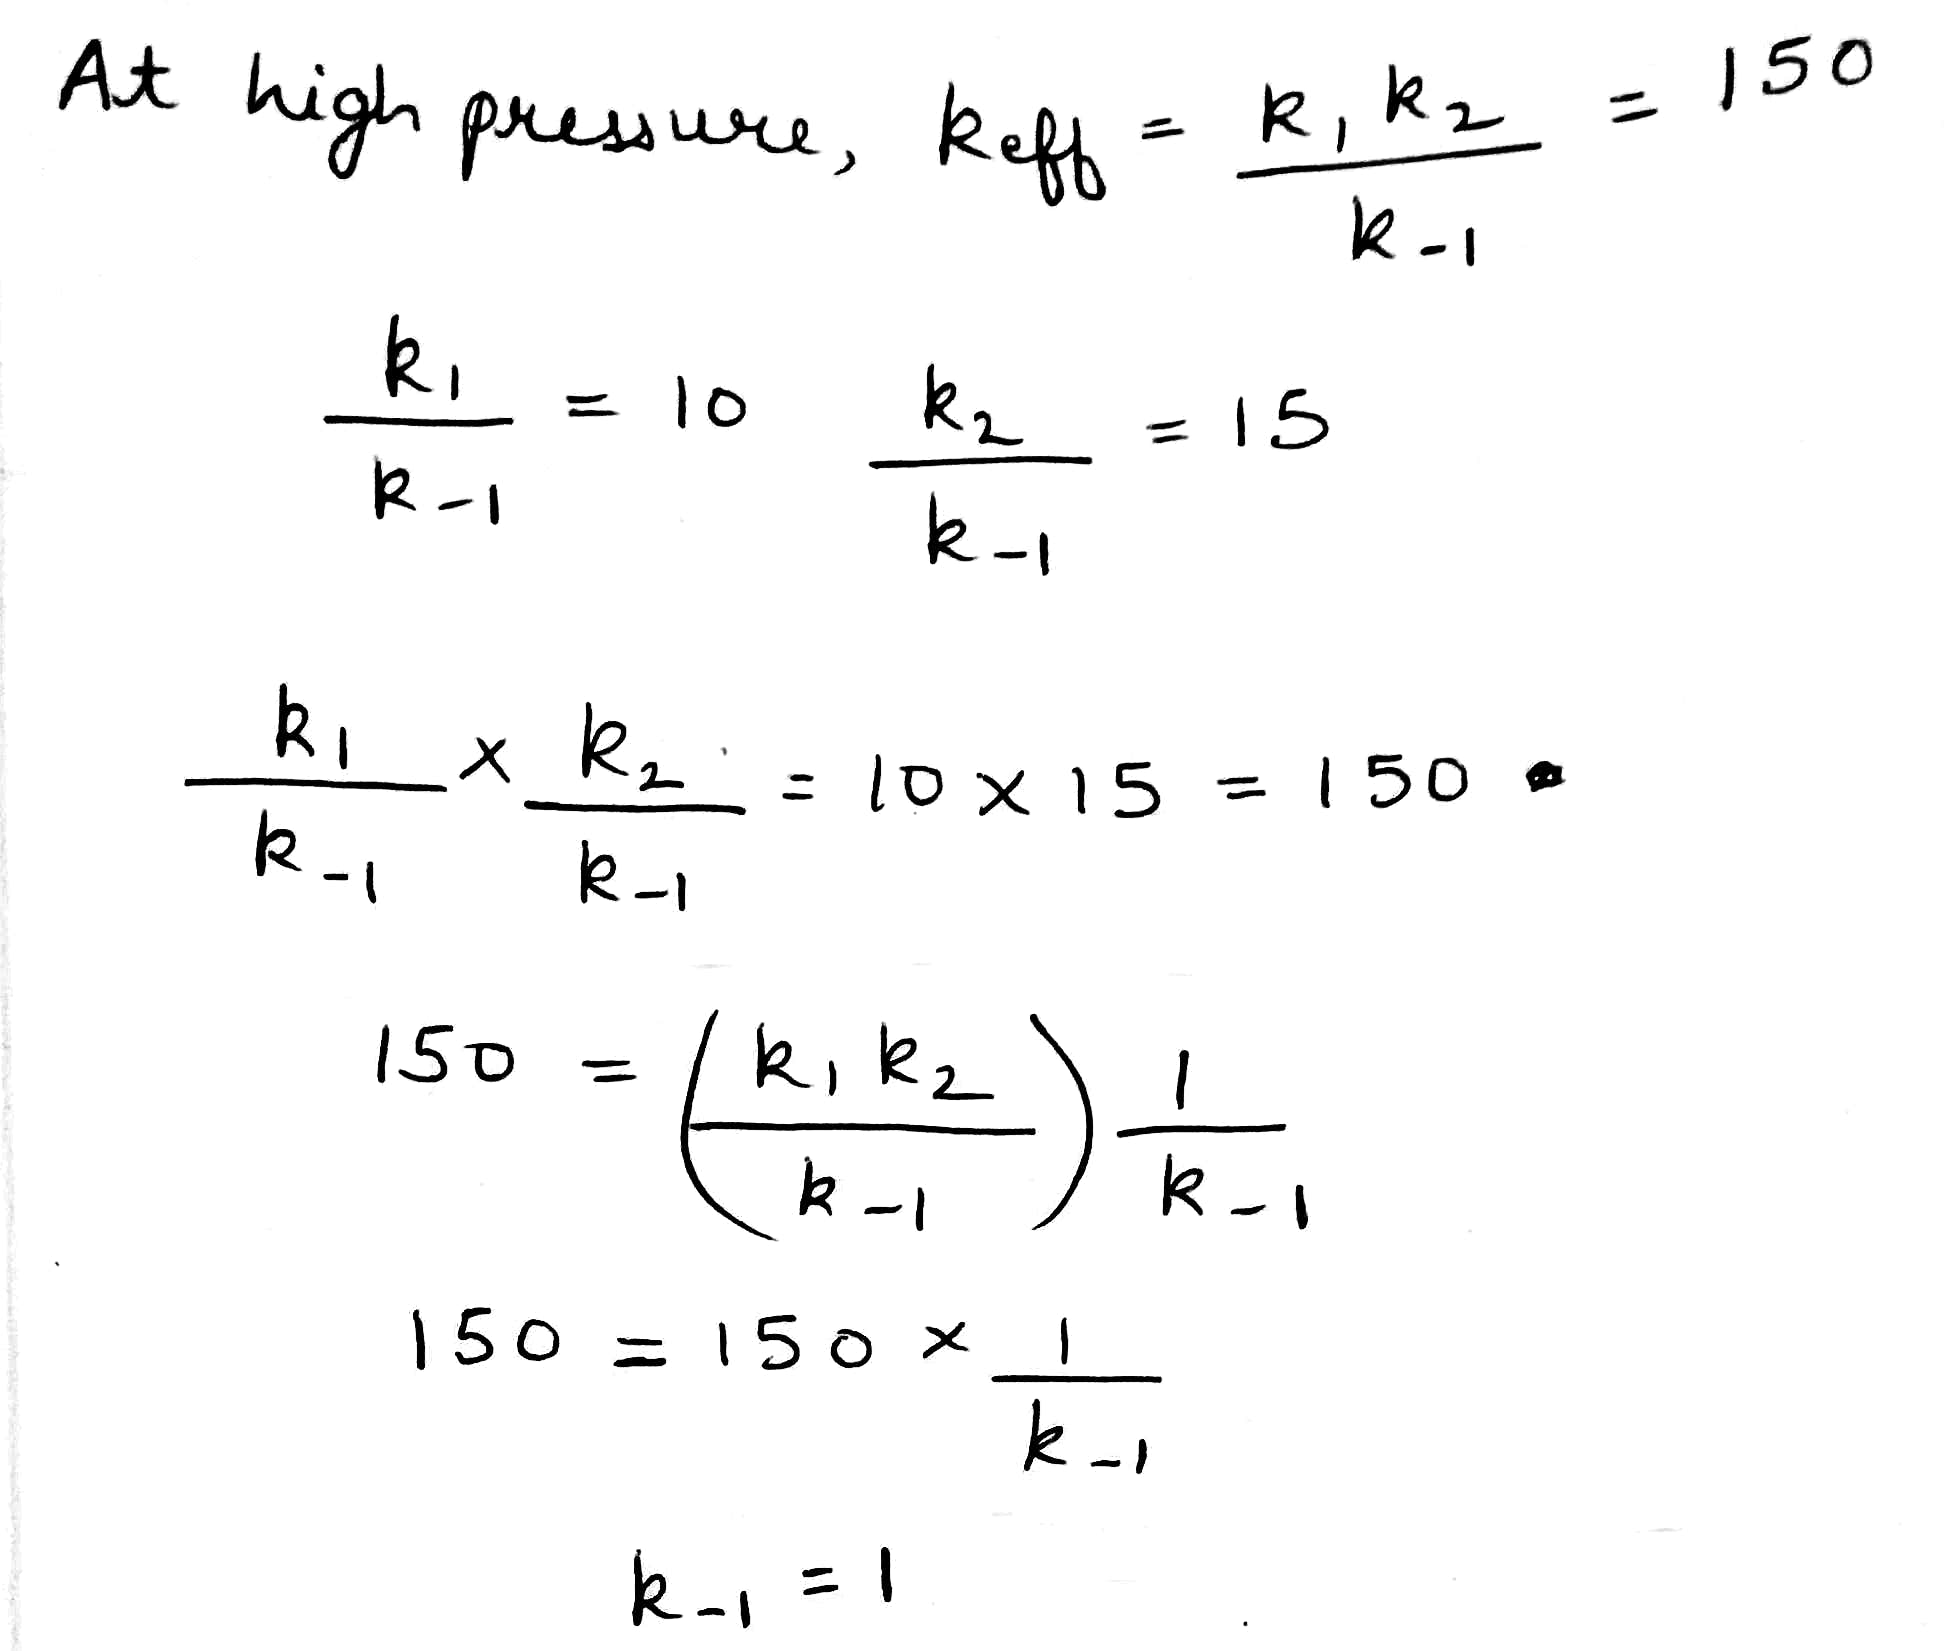 At high pressure, keff = k1 k2 / k-1 = 150
k1 / k-1 = 10 k2 / k-1 = 15
k1 / k-1 × k2 / k-1 = 10 × 15 = 150
150 = (k1 k2 / k-1) 1 / k-1
150 = 150 × 1 / k-1
k-1 = 1